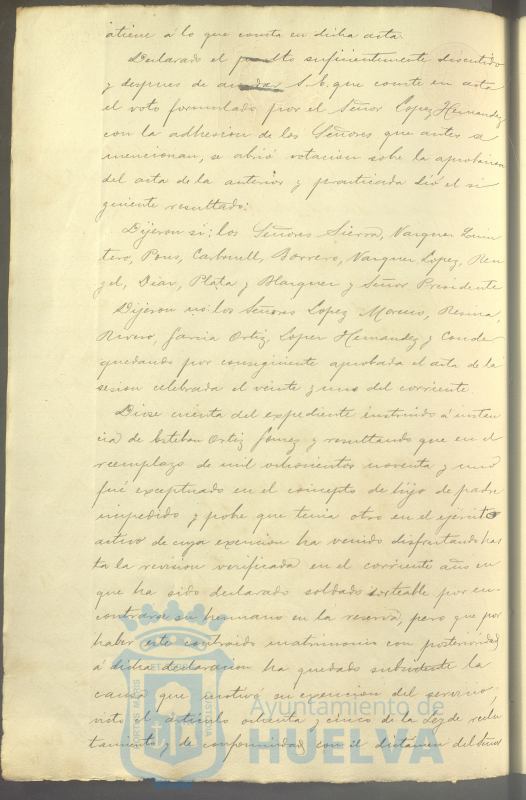 atiene á lo que consta en dicha acta.
Declarado el punto suficientemente discutido
y despues de acordar S. E. que conste en acta
el voto formulado por el Señor Lopez Hernandez
con la adhesion de los Señores que antes se
mencionan, se abrió votacion sobre la aprobacion
del acta de la anterior y practicada dió el si
guiente resultado:
Dijeron si: los Señores Sierra, Vazquez Quin
tero, Pons, Carbonell, Borrero, Vazquez Lopez, Ren
gel, Diaz, Plata y Blazquez y Señor Presidente
Dijeron no: los Señores Lopez Moreno, Resina,
Rivero, Garcia Ortiz, Lopez Hernandez y Conde
quedando por consiguiente aprobada el acta de la
sesion celebrada el veinte y uno del corriente.
Dióse cuenta del expediente instruido á instan
cia de Esteban Ortiz Gomez y resultando que en el
reemplazo de mil ochocientos noventa y uno
fué exceptuado en el concepto de hijo de padre
impedido y pobre que tenia otro en el ejército
activo de cuya exencion ha venido disfrutando has
ta la revision verificada en el corriente año en
que ha sido declarado soldado sorteable por en-
contrarse su hermano en la reserva, pero que por
haber este contraido matrimonio con posterioridad
á dicha declaracion ha quedado subsistente la
causa que motivó su exencion del servicio,
visto el artículo ochenta y cinco de la Ley de reclu
tamiento y de conformidad con el dictámen del Señor
Ayuntamiento de
HUELVA